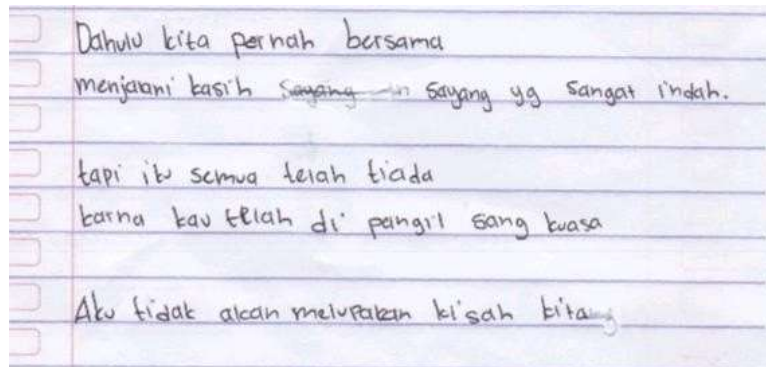 Dahulu kita pernah bersama
menjalani kasih sayang yg sangat indah.
tapi itu semua telah tiada
karna kau telah di pangil sang kuasa
Aku tidak akan melupakan kisah kita